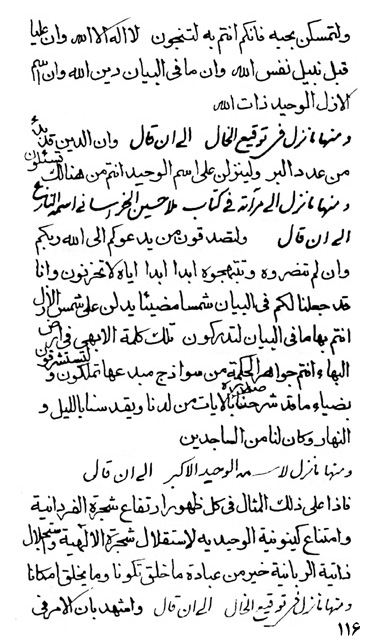 ولتمسكن بحبه فانكم انتم به لتنجون لا اله الا الله وان عليا
قبل نبيل نفس الله وان ما في البيان دين الله وان اسم
الازل الوحيد ذات الله
ومنها ما نزل في توقيع الخال الى ان قال وان الدين قد بدء
من عدد البر ولينزلن على اسم الوحيد انتم من هنالك تسئلون
ومنها ما نزل الى مرآته في كتاب ملا حسين الخراساني اسمه
الى ان قال ولتصدقون من يدعوكم الى الله ربكم
وان لم تنصروه وتتهجوه ابدا ابدا اياه لا تحزنون وانا
قد جعلنا لكم في البيان شمسا مضيئا يدلن على شمس الازل
انتم بها ما في البيان لتدركون تلك كلمة الابهى في ارض
البهاء انتم جواهر الحكمة من سواذج مبدعها تملكون و لتستشرقون
بضياء ما قد شرحنا صدره بالايات من لدنا ويقدسنا بالليل و
النهار وكان لنا من الساجدين
ومنها ما نزل لاسمه الوحيد الاكبر الى ان قال
فاذا على ذلك المثال في كل ظهور ارتفاع شجرة الفردانية
وامتناع كينونية الوحيديه لاستقلال شجرة الالهية واستجلال
ذاتية الربانية خير من عبادة ما خلق تكونا وما يخلق امكانا
ومنها ما نزل في توقيع الخال الى ان قال وامتهد بان الامر في
١١۶